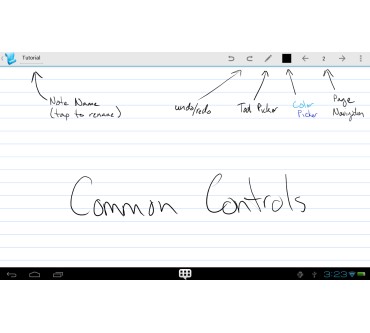 Tutorial
2
Note Name
(tap to rename)
undo/redo
Tool Picker
Color
Picker
Page
Navigation
Common Controls
3:23